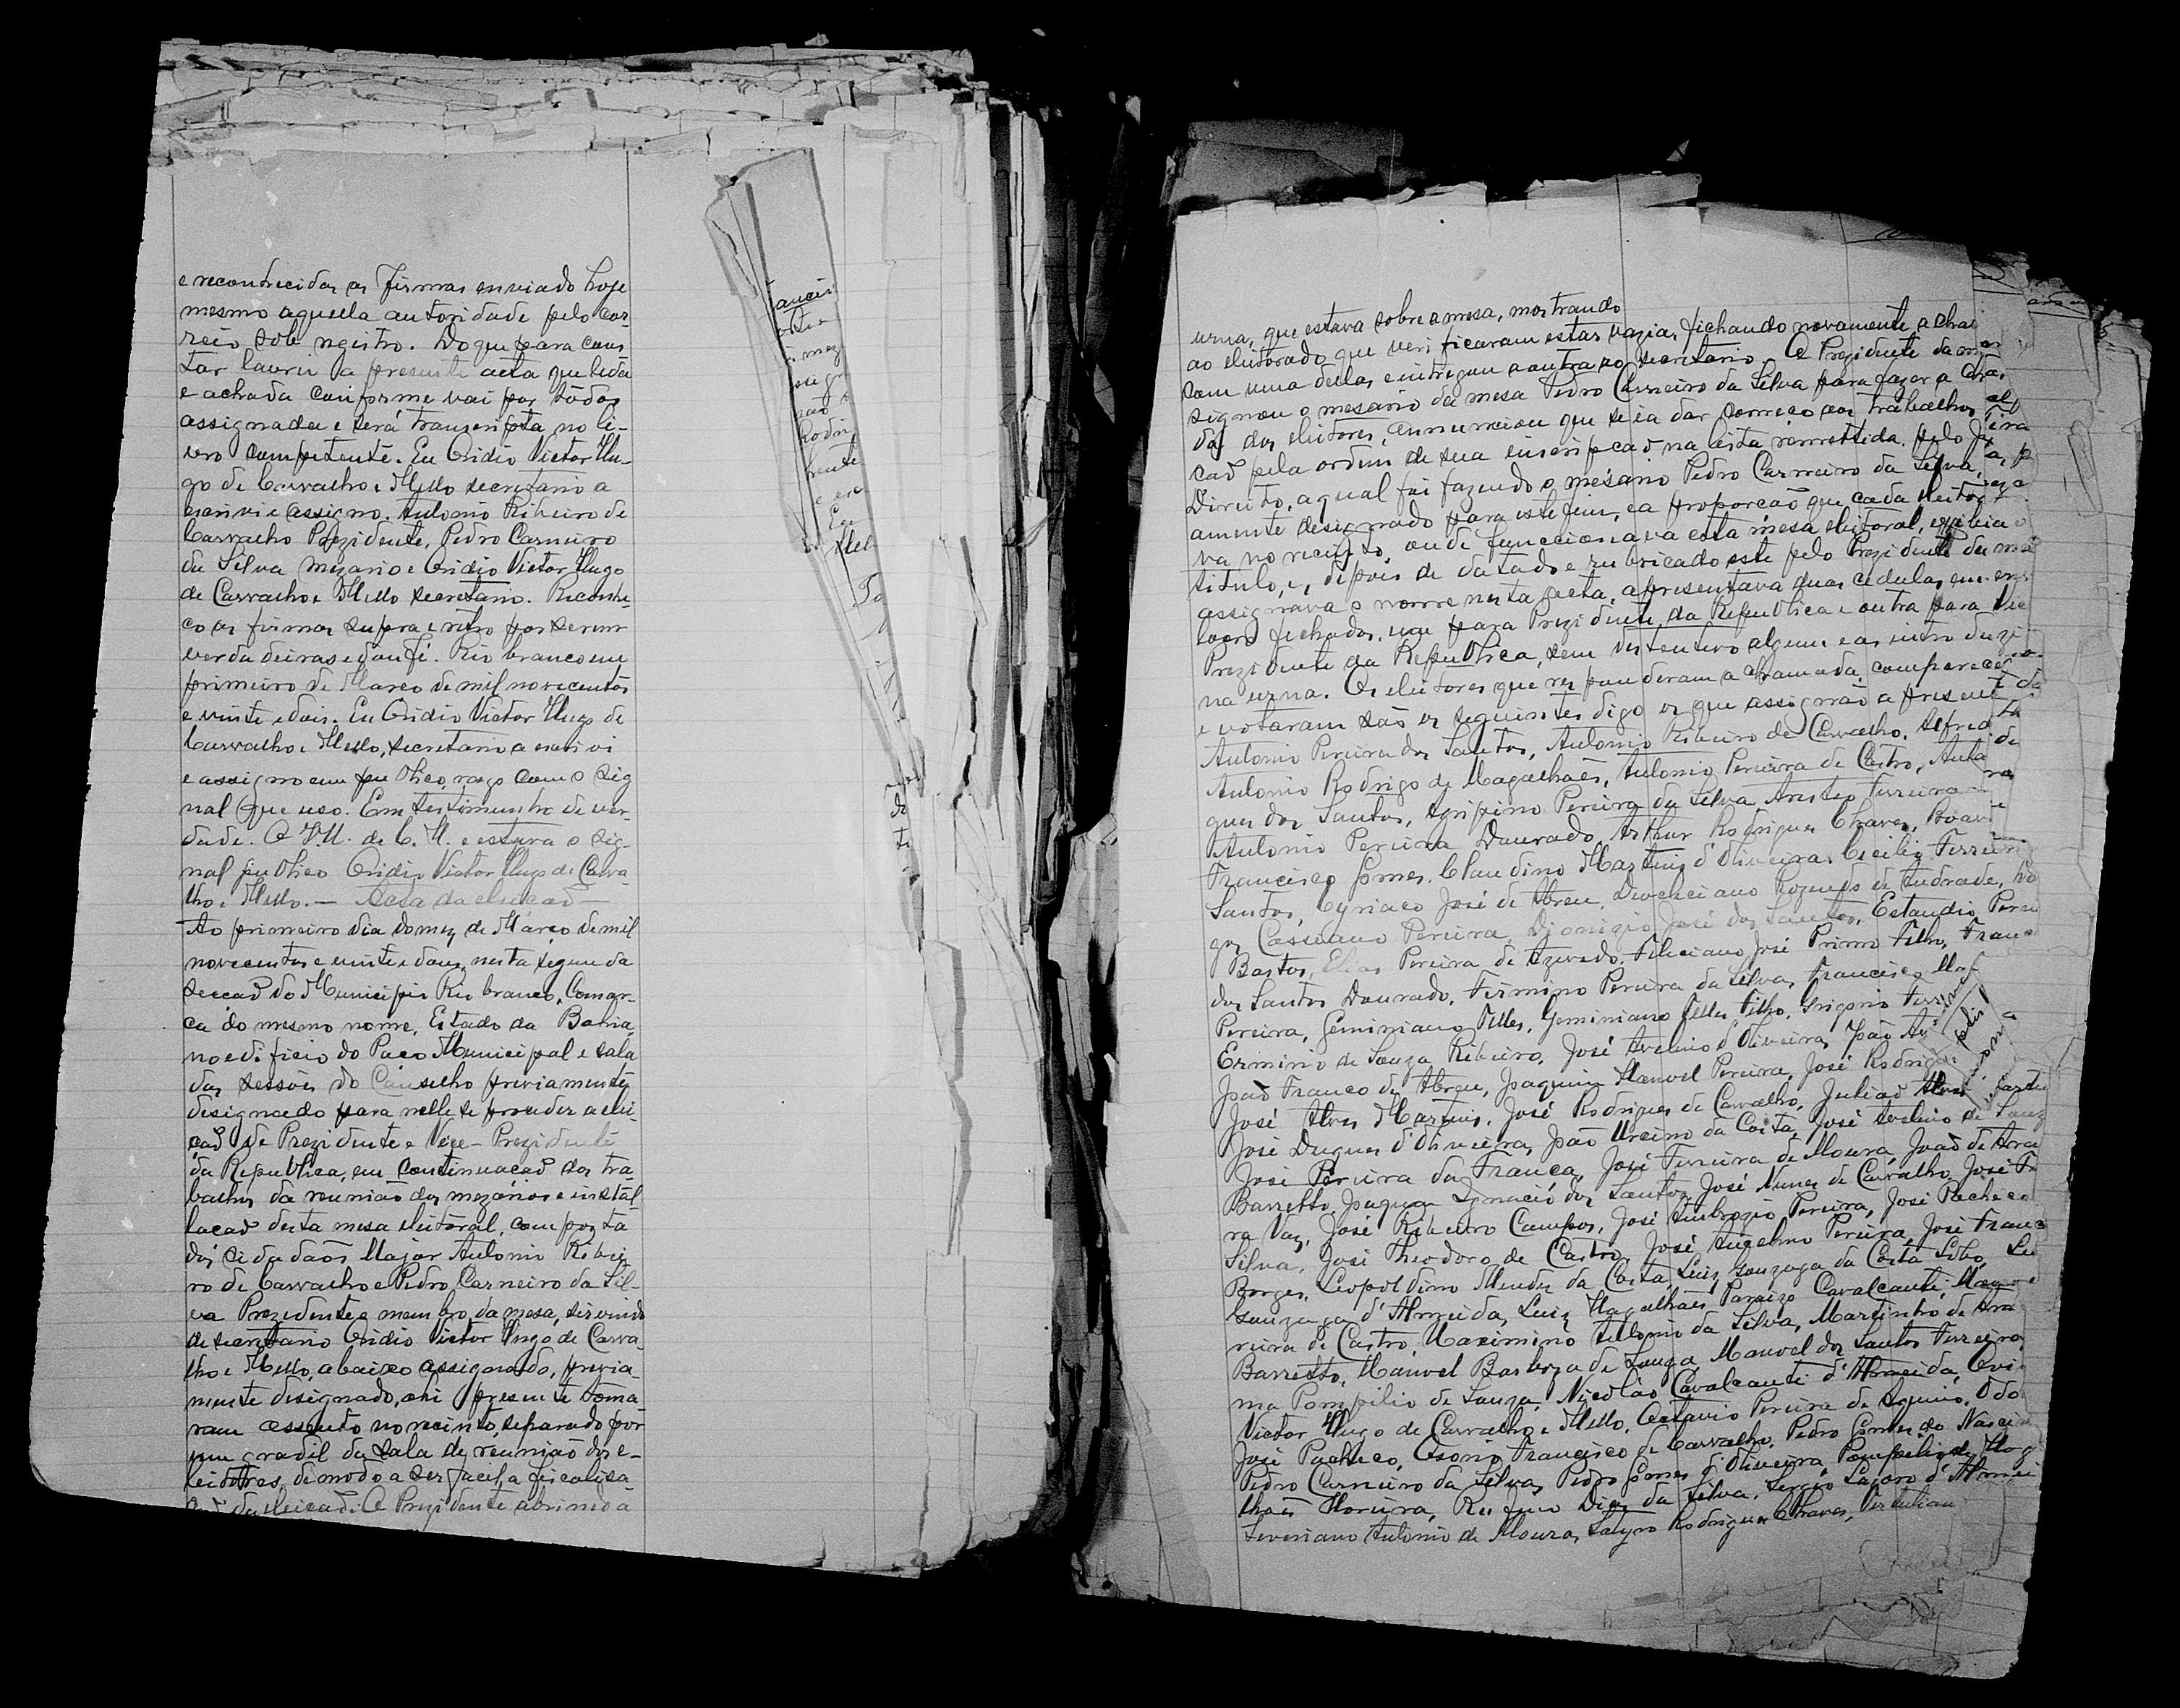 e reconhecidas as firmas enviado hoje
mesmo aquella autoridade pelo cor-
reio sob registro. Do que para cons
tar lavrei a presente acta que lida
e achada conforme vai por todos
assignada e será transcripta no li-
vro competente. Eu Ovidio Victor Hu-
go de Carvalho e Mello secretario a
escrivi e assigno. Antonio Ribeiro de
Carvalho Prezidente, Pedro Carneiro
da Silva mezario e Ovidio Victor Hugo
de Carvalho e Mello secretario. Reconhe-
ço as firmas supra e retro por serem
verdadeiras e dou fé. Rio branco em
primeiro de Março de mil novecentos
e vinte e dois. Eu Ovidio Victor Hugo de
Carvalho e Mello, secretario a escrivi
e assigno em publico, razo com o sig
nal que uso. Em testimunho de ver-
dade. O V.H. de C. M. estava o sig-
nal publico Ovidio Victor Hugo de Carva-
lho e Mello. — Acta da eleicaõ —
Ao primeiro dia do mez de Março de mil
novecentos e vinte e dous, nesta segunda
seccaõ do Municipio Rio branco, Comar-
ca do mesmo nome, Estado da Bahia,
no edificio do Paço Municipal e sala
das sessões do Conselho previamente
designado para nelle se proceder a elei-
çaõ de Prezidente e Vice-Prezidente
da Republica, em continuacaõ dos tra-
balhos da reuniaõ dos mezarios e instal
lacaõ desta mesa eleitoral, composta
dos cidadaõs Major Antonio Ribei
ro de Carvalho e Pedro Carneiro da Sil-
va Prezidente e membro da mesa, servindo
de secretario Ovidio Victor Hugo de Carva-
lho e Mello, abaixo assignado, previa-
mente designado, ahi presente toma-
ram assento no recinto, separado por
um gradil da sala de reunião dos e-
leitores, de modo a ser facil a fiscalisa-
da eleicaõ. O Prezidente abrindo a
urna, que estava sobre a mesa, mostrando
ao eleitorado que verificaram estar vazia, fichando novamente a chav
com uma dellas e entregou a outra ao secretario. O Prezidente da
signou o mesario da mesa Pedro Carneiro da Silva para fazer a cha-
da dos eleitores, annunciou que se ia dar começo aos trabalhos
caõ pela ordem de sua inscripcaõ na lista remettida pelo
Direito, a qual foi fazendo o mesario Pedro Carneiro da Silva,
amente designado para este fim, e a proporcaõ que cada eleitor
va no recinto, onde funccionava esta mesa eleitoral, exhibia o
titulo, e, depois de datado e rubricado este pelo Prezidente da me
assignava o nome nesta acta, apresentava duas cedulas em
fechados, uma para Prezidente da Republica e outra para Vice
Prezidente da Republica, sem destinctivo algum e as introduzi
na urna. Os eleitores que responderam a chamada, comparecer
e votaram saõ os seguintes digo os que assignaõ a presente
Antonio Pereira dos Santos, Antonio Ribeiro de Carvalho, Alfred
Antonio Rodrigo de Magalhaẽs, Antonio Pereira de Castro, Anto
gues dos Santos, Agripino Pereira da Silva, Aristeo Ferreira
Antonio Pereira Dourado, Arthur Rodrigues Chaves, Boav
Francisco Gomes, Claudino Martins d'Oliveira, Cecilio Ferreir
Santos, Cyriaco José de Abreu, Rozendo de Andrade,
gos Cassiano Pereira, Dionizio José dos Santos, Pere
Bastos, Elias Pereira de Azevedo, Feliciano José Primo Filho, Franc
dos Santos Dourado, Firmino Pereira da Silva, Francisco
Pereira, Geminiano Telles, Geminiano Telles Filho, Grigorio Ferr
Erminio de Souza Ribeiro, José Avelino d'Oliveira, João
João Franco de Abreu, Joaquim Manoel Pereira, José Rodrig
José Alves Martins, José Rodrigues de Carvalho, Juliaõ Alves
José Duques d'Oliveira, João Ursino da Costa, José Avelino de Souz
José Pereira da Franca, José Ferreira de Moura, João de Ara
Barretto, Joaquim Ignacio dos Santos, José Nunes de Carvalho, José
ra Vaz, José Ribeiro Campos, José Ambrozio Pereira, José Pacheco
Silva, José Theodoro de Castro, José Anselmo Pereira, José Franc
Borges, Leopoldino Mendes da Costa, Luiz Gonzaga da Costa Lobo,
Gonzaga d'Almeida, Luiz Magalhães Paraizo Cavalcante,
reira de Castro, Maximino Antonio da Silva, Martinho de Ara
Barretto, Manoel Barboza de Souza, Manoel dos Santos Ferreira
ma Pompilio de Souza, Nicolão Cavalcanti d'Almeida, Ovi
Victor Hugo de Carvalho e Mello, Octavio Pereira de Aquino, Odo
José Pacheco, Ozorio Francisco de Carvalho, Pedro Gomes do Nascim
Pedro Carneiro da Silva, Pedro Gomes d'Oliveira, Pompilio de Mag
lhaẽs Moreira, Rufino Dias da Silva, Sergio Lazaro d'Almei
Severiano Antonio de Moura, Satyro Rodrigues Chaves, Tertulian